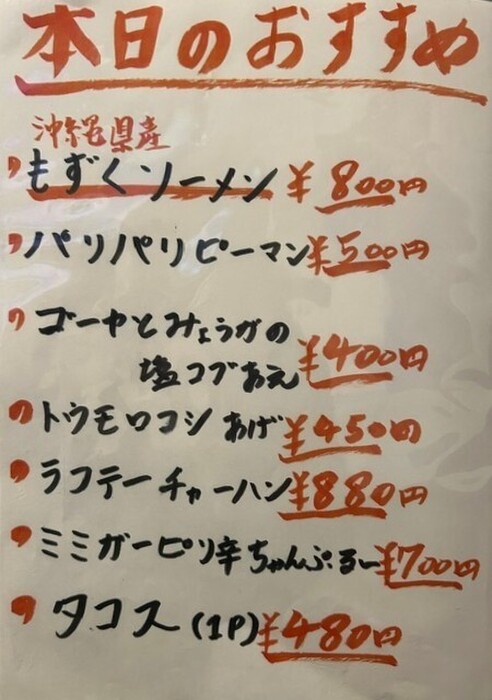 本日のおすすめ
沖縄県産
もずくソーメン ¥800円
パリパリピーマン ¥500円
ゴーヤとみょうがの
塩コブあえ ¥400円
トウモロコシあげ ¥450円
ラフテーチャーハン ¥880円
ミミガーピリ辛ちゃんぷるー ¥700円
タコス(1P) ¥480円